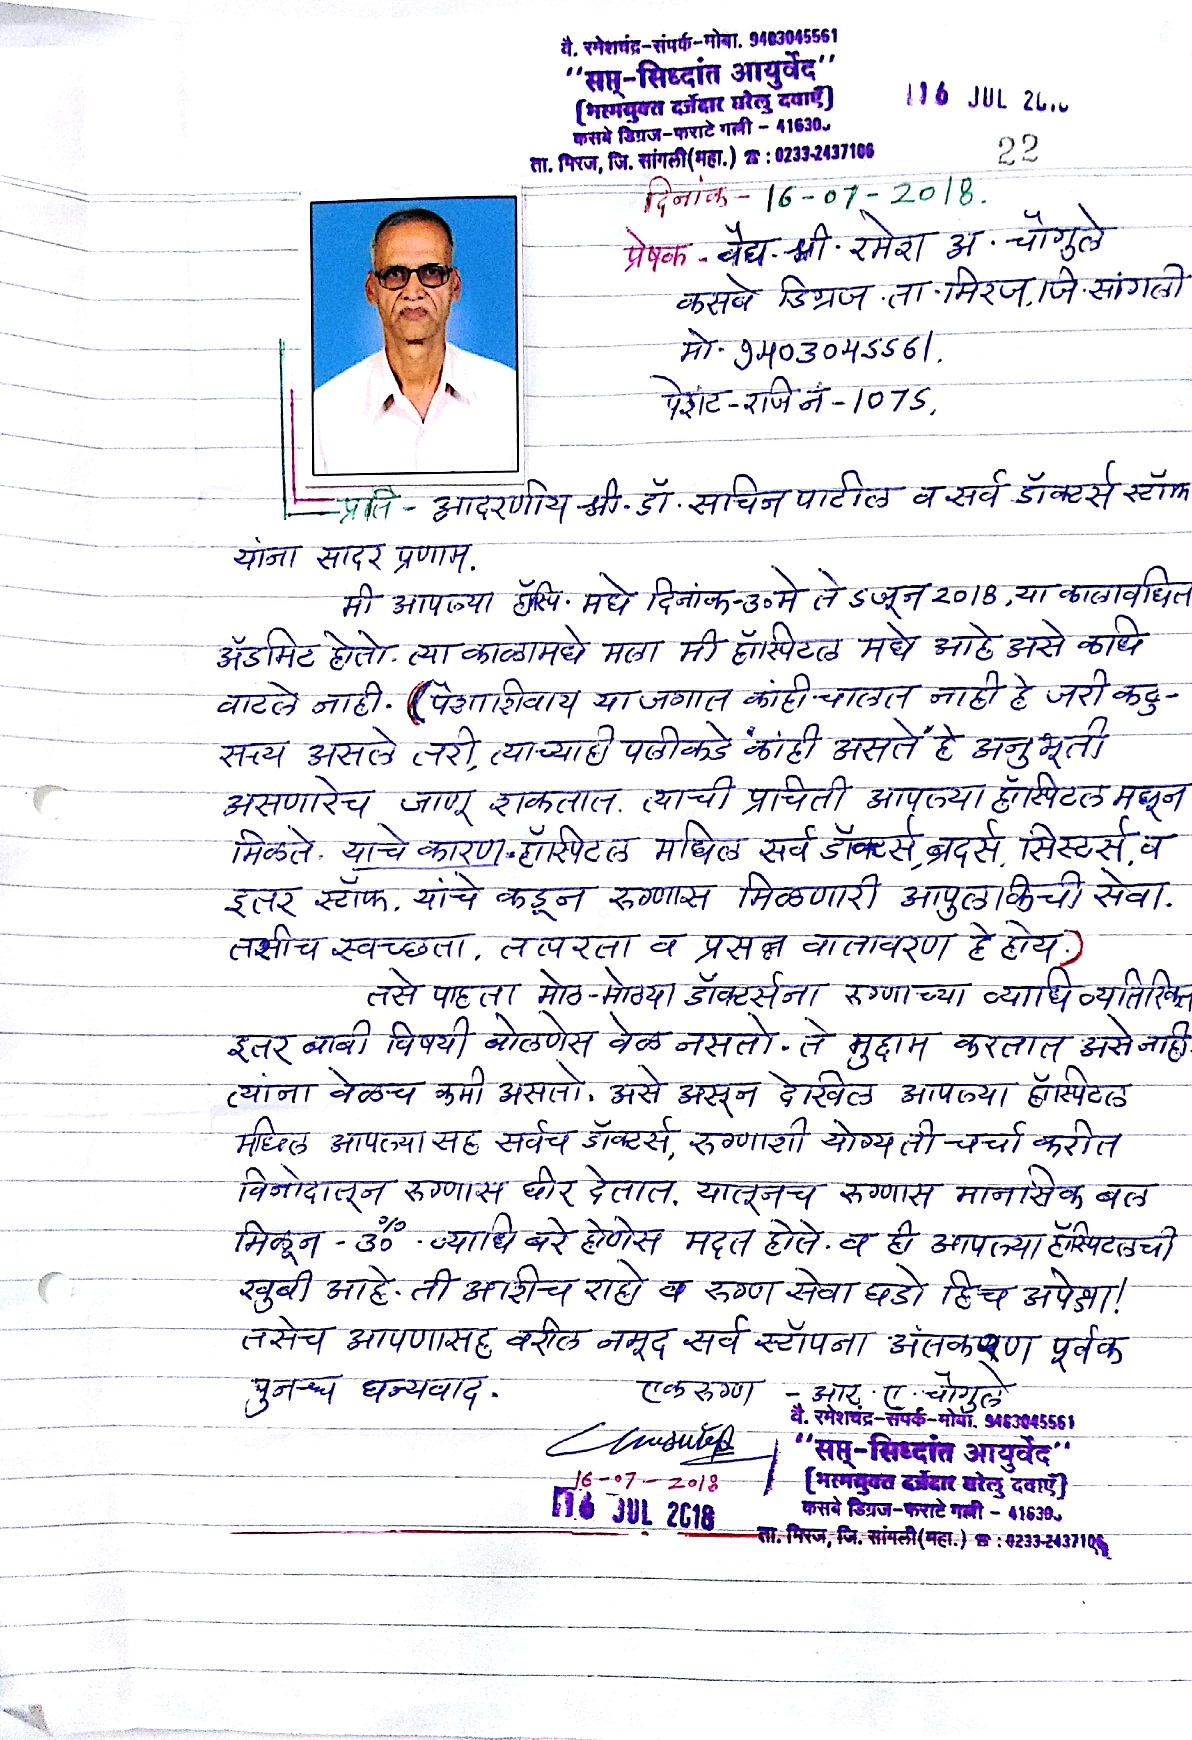 वै. रमेशचंद्र-संपर्क-मोबा. 9403045561
"सप्त-सिध्दांत आयुर्वेद"
(भस्मयुक्त दर्जेदार घरेलु दवाएँ)
कसबे डिग्रज-फराटे गल्ली - 41630
ता. मिरज, जि. सांगली(महा.) ☎ : 0233-2437106
16 JUL
22
दिनांक - 16-07-2018.
प्रेषक - वैद्य. श्री. रमेश अ. चौगुले
कसबे डिग्रज. ता. मिरज, जि. सांगली
मो. 9403045561.
पेशंट - रजि नं - 1075.
प्रति - आदरणीय श्री. डॉ. सचिन पाटील व सर्व डॉक्टर्स स्टॉफ
यांना सादर प्रणाम.
मी आपल्या हॉस्पि. मधे दिनांक-३० मे ते 5 जून 2018, या कालावधित
ॲडमिट होतो. त्या काळामधे मला मी हॉस्पिटल मधे आहे असे कधि
वाटले नाही. (पैशाशिवाय या जगात कांही चालत नाही हे जरी कटु-
सत्य असले तरी, त्याच्याही पलीकडे "कांही असते" हे अनुभूती
असणारेच जाणू शकतात. त्याची प्रचिती आपल्या हॉस्पिटल मधून
मिळते. याचे कारण - हॉस्पिटल मधिल सर्व डॉक्टर्स, ब्रदर्स, सिस्टर्स, व
इतर स्टॉफ. यांचे कडून रुग्णास मिळणारी आपुलकिची सेवा.
तसीच स्वच्छता. तत्परता व प्रसन्न वातावरण हे होय.)
तसे पाहता मोठ-मोठ्या डॉक्टर्सना रुग्णाच्या व्याधि व्यतिरिक्त
इतर बाबी विषयी बोलणेस वेळ नसतो. ते मुद्दाम करतात असे नाही.
त्यांना वेळच कमी असतो. असे असून देखिल आपल्या हॉस्पिटल
मधिल आपल्या सह सर्वच डॉक्टर्स, रुग्णाशी योग्य ती चर्चा करीत
विनोदातून रुग्णास धीर देतात. यातूनच रुग्णास मानसिक बल
मिळून - ३०% . व्याधि बरे होणेस मदत होते. व ही आपल्या हॉस्पिटलची
खुबी आहे. ती अशीच राहो व रुग्ण सेवा घडो हिच अपेक्षा!
तसेच आपणासह वरील नमूद सर्व स्टॉपना पूर्वक
पुनश्च धन्यवाद. एक रुग्ण - आर. ए. चौगुले
वै. रमेशचंद्र-संपर्क-मोबा. 9403045561
"सप्त-सिध्दांत आयुर्वेद"
(भस्मयुक्त दर्जेदार घरेलु दवाएँ)
16-07-2018
16 JUL 2018
कसबे डिग्रज-फराटे गल्ली - 41630
ता. मिरज, जि. सांगली(महा.) ☎ : 0233-2437106